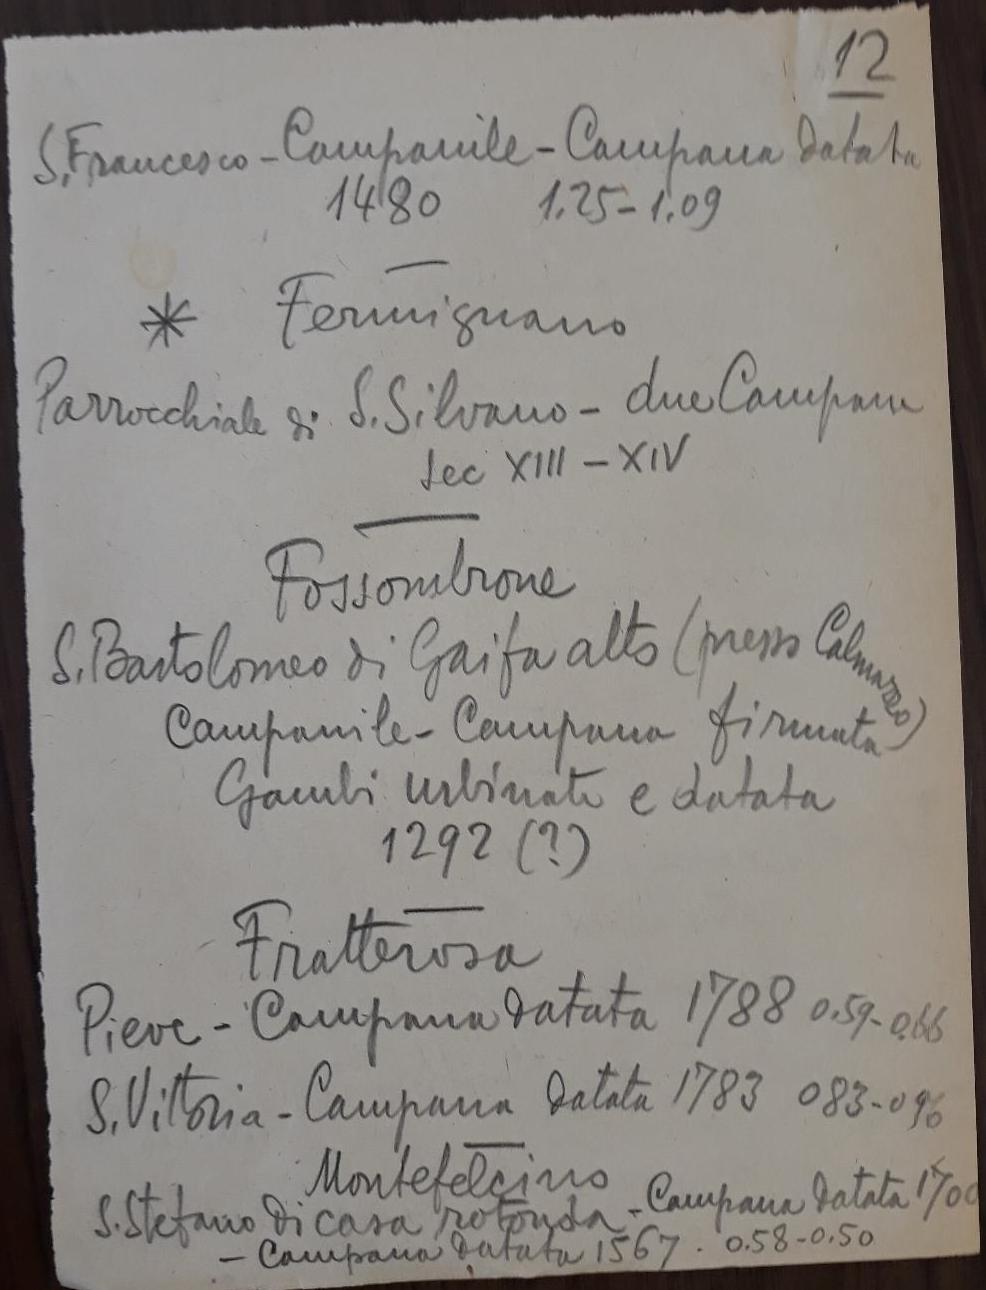 12
S. Francesco - Campanile - Campana datata
1480 1.25 - 1.09
* Fermignano
Parrocchiale di S. Silvano - due Campane
sec XIII - XIV
Fossombrone
S. Bartolomeo di Gaifa alto (presso Calmazzo)
Campanile - Campana firmata
Gambi urbinate e datata
1292 (?)
Fratterosa
Pieve - Campana datata 1788 0.59-0.66
S. Vittoria - Campana datata 1783 083-096
Montefelcino
S. Stefano di casa rotonda - Campana datata 1700
- Campana datata 1567 . 0.58-0.50